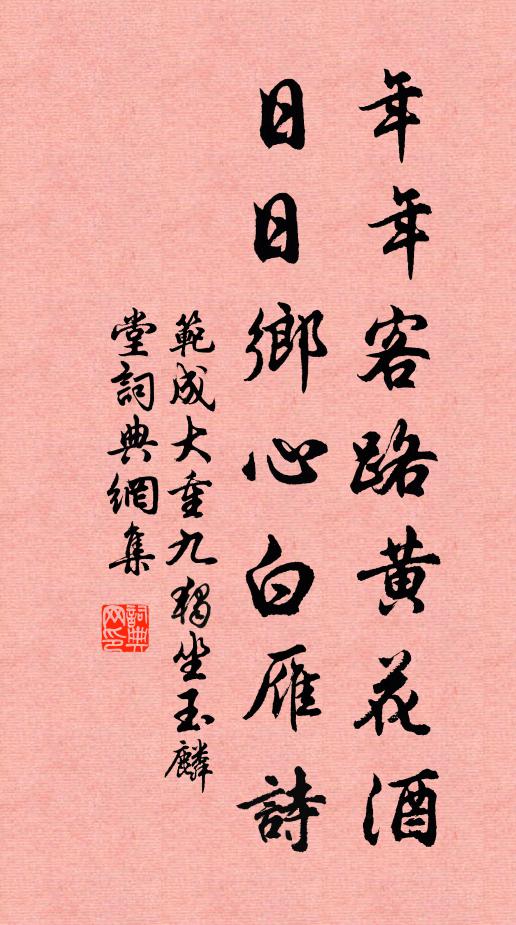 年年客路黄花酒
日日鄉心白雁詩
範成大重九獨坐玉麟
堂詞典網集
詞典網印